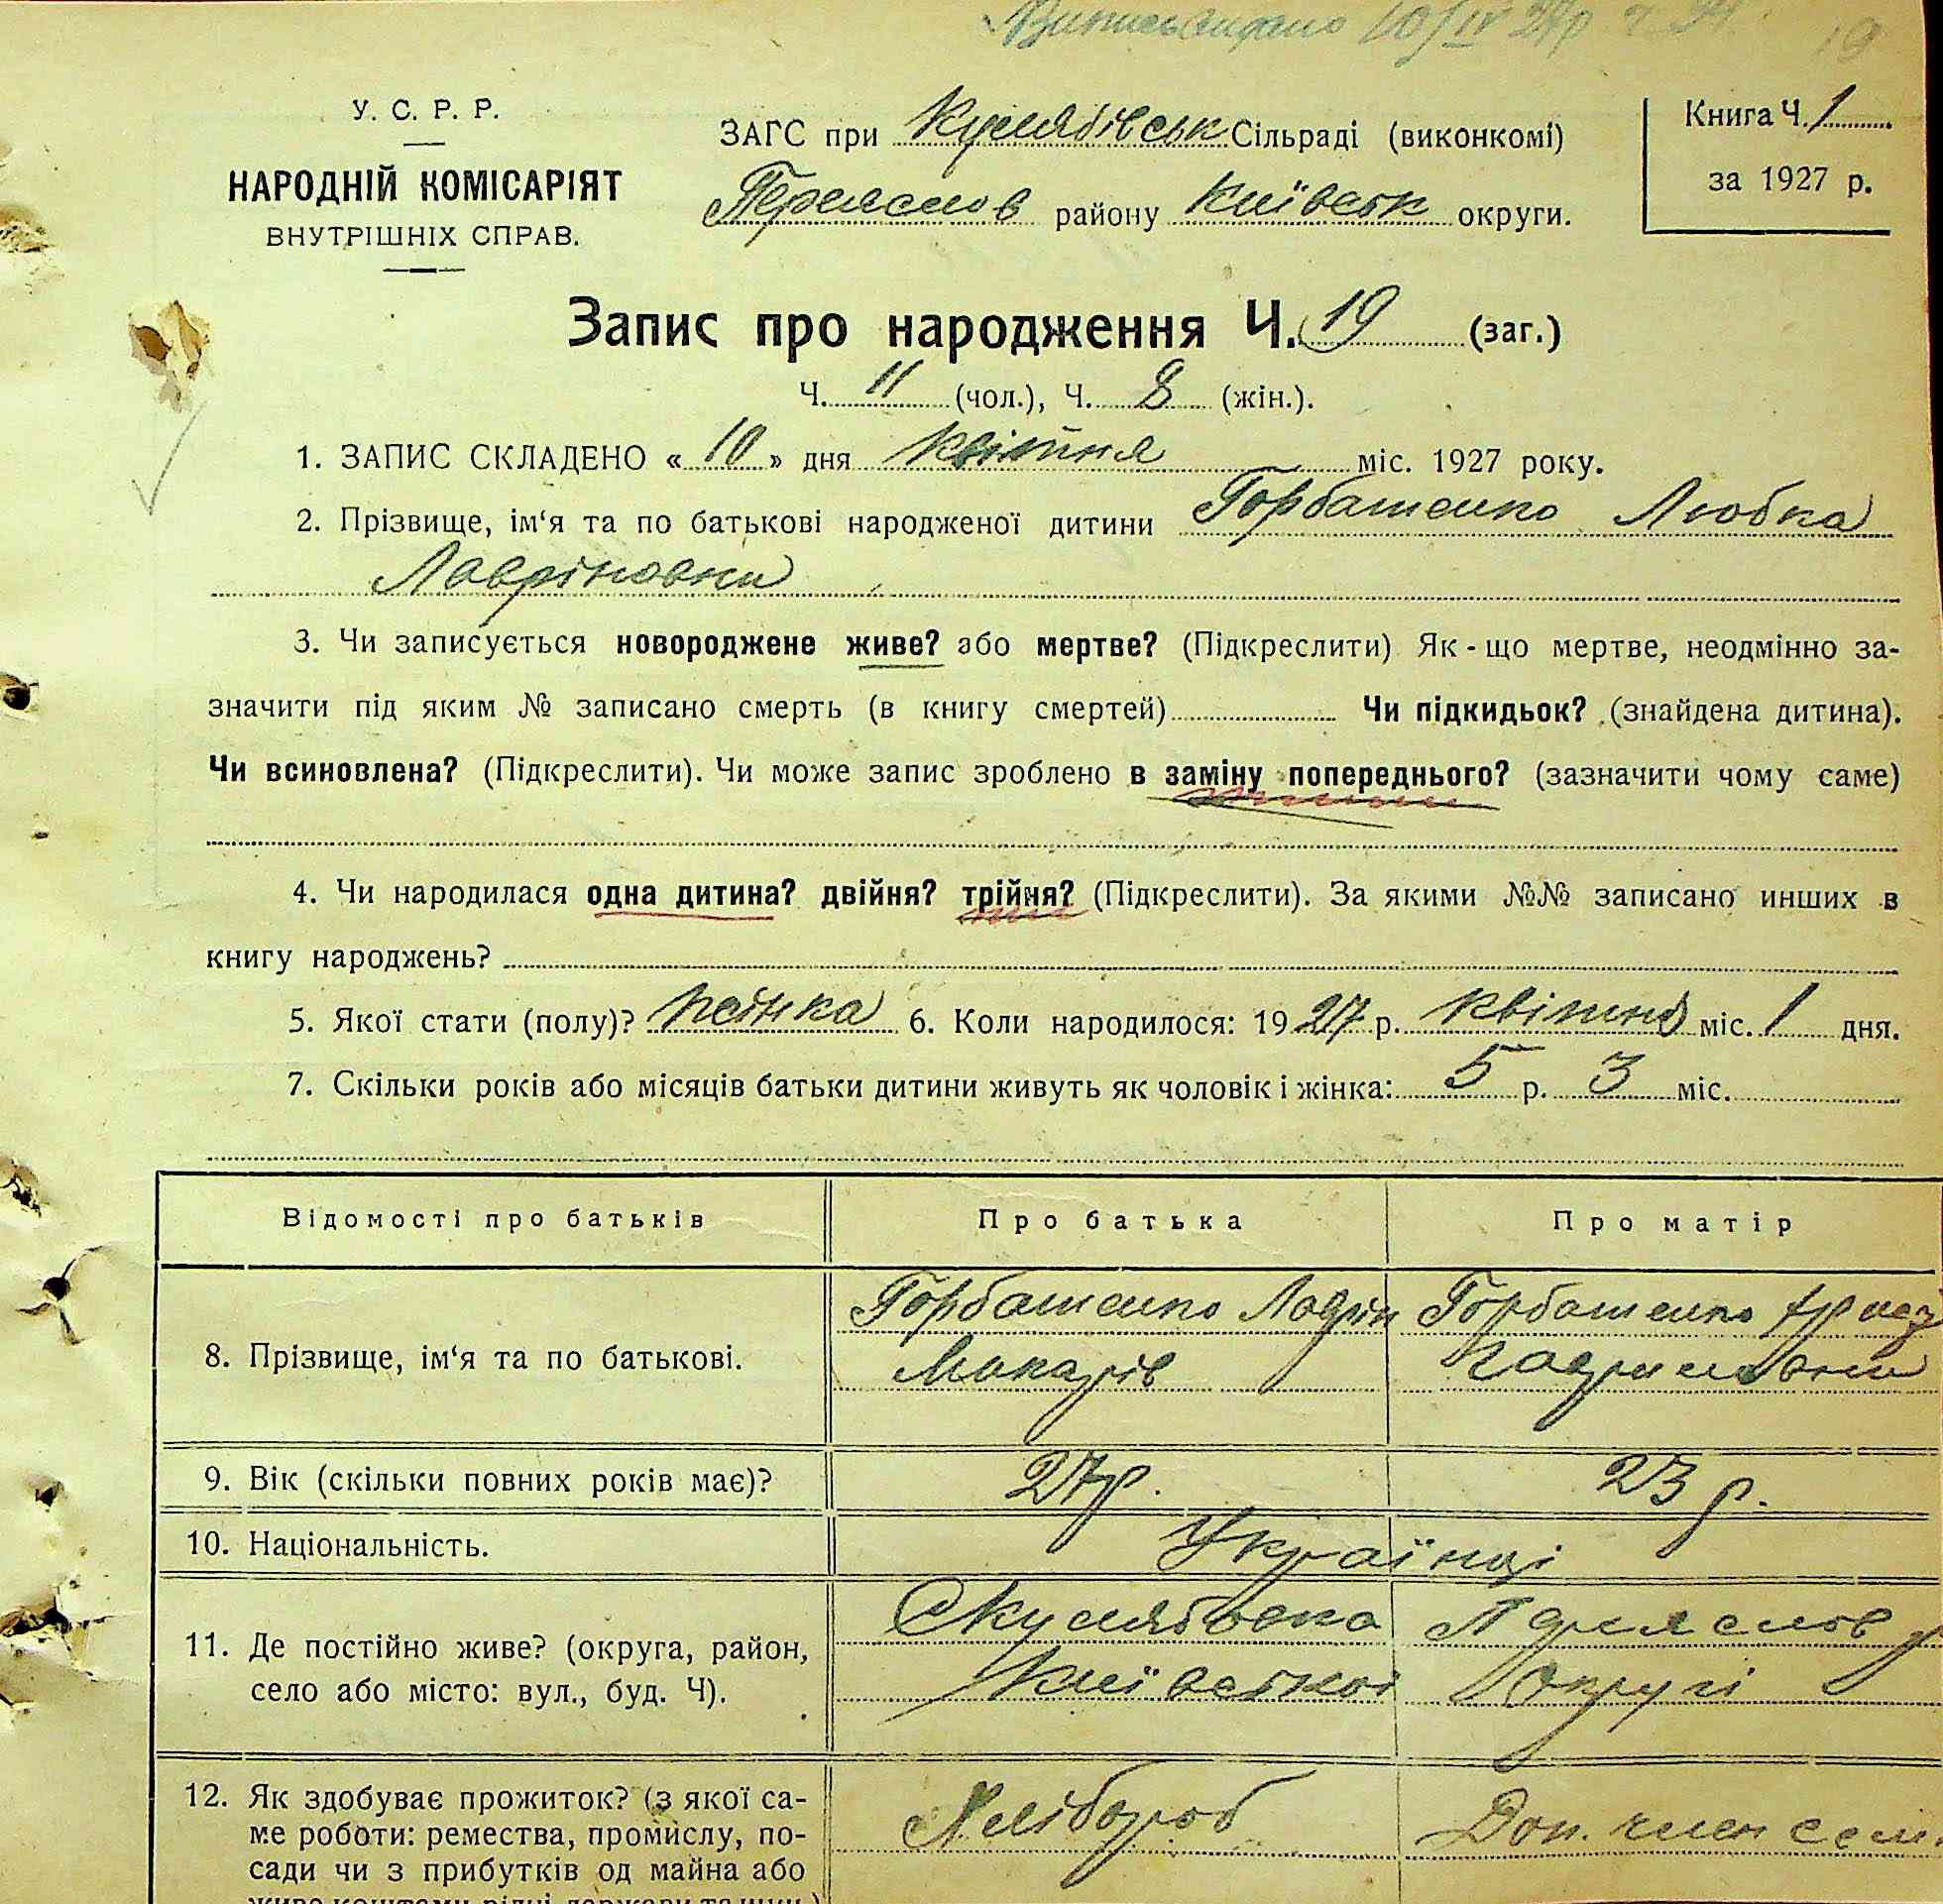 Выпись видано 10/IV 27р
У. С. Р. Р.
НАРОДНІЙ КОМІСАРІЯТ
ВНУТРІШНІХ СПРАВ.
ЗАГС при Кулябівськ Сільраді (виконкомі)
Переяслов району Київськ округи.
Книга Ч. 1
за 1927 р.
Запис про народження Ч. 19 (заг.)
Ч. 11 (чол.), Ч. 8 (жін.).
1. ЗАПИС СКЛАДЕНО «10» дня квітня міс. 1927 року.
2. Прізвище, ім‘я та по батькові народженої дитини Горбатенко Любка
Лавріновни
3. Чи записується новороджене живе? або мертве? (Підкреслити) Як-що мертве, неодмінно за-
значити під яким № записано смерть (в книгу смертей) Чи підкидьок? (знайдена дитина).
Чи всиновлена? (Підкреслити). Чи може запис зроблено в заміну попереднього? (зазначити чому саме)
4. Чи народилася одна дитина? двійня? трійня? (Підкреслити). За якими №№ записано инших в
книгу народжень?
5. Якої стати (полу)? жінка 6. Коли народилося: 1927 р. квітня міс. 1 дня.
7. Скільки років або місяців батьки дитини живуть як чоловік і жінка: 5 р. 3 міс.
Відомості про батьків Про батька Про матір
8. Прізвище, ім‘я та по батькові.
Горбатенко Лаврін
Макарів
Горбатенко
Гавриловни
9. Вік (скільки повних років має)? 27р. 23 р.
10. Національність. Українці
11. Де постійно живе? (округа, район,
село або місто: вул., буд. Ч).
Переяслов р
Київської округі
12. Як здобуває прожиток? (з якої са-
ме роботи: ремества, промислу, по-
сади чи з прибутків од майна або
Хлібороб
Доп. член сем.